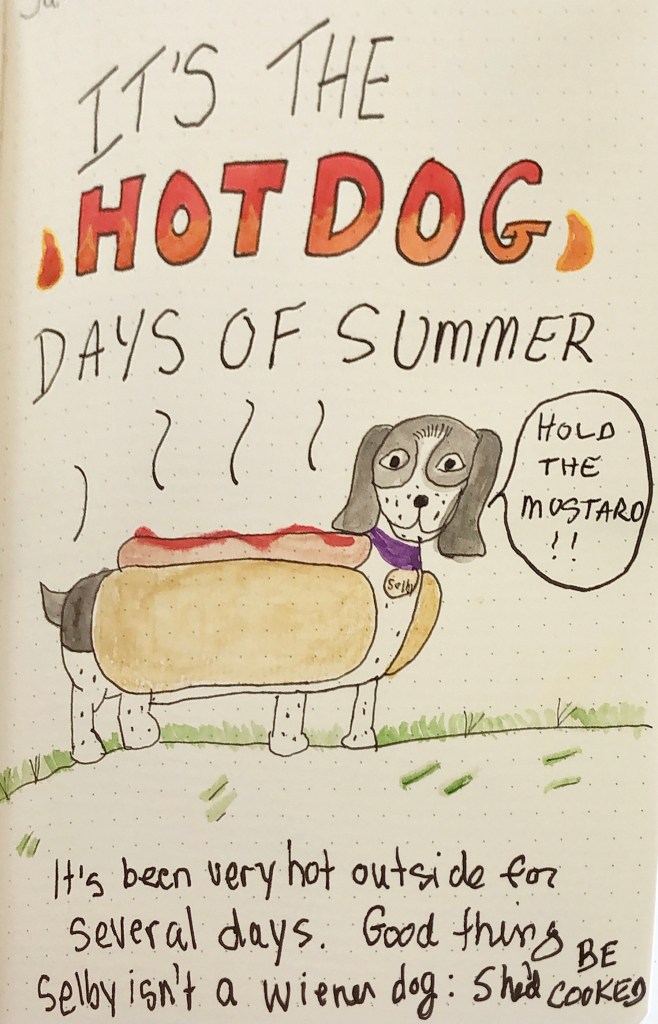 IT'S THE
HOT DOG
DAYS OF SUMMER
HOLD
THE
MUSTARD
!!
Selby
It's been very hot outside for
several days. Good thing
Selby isn't a wiener dog: She'd BE
COOKED